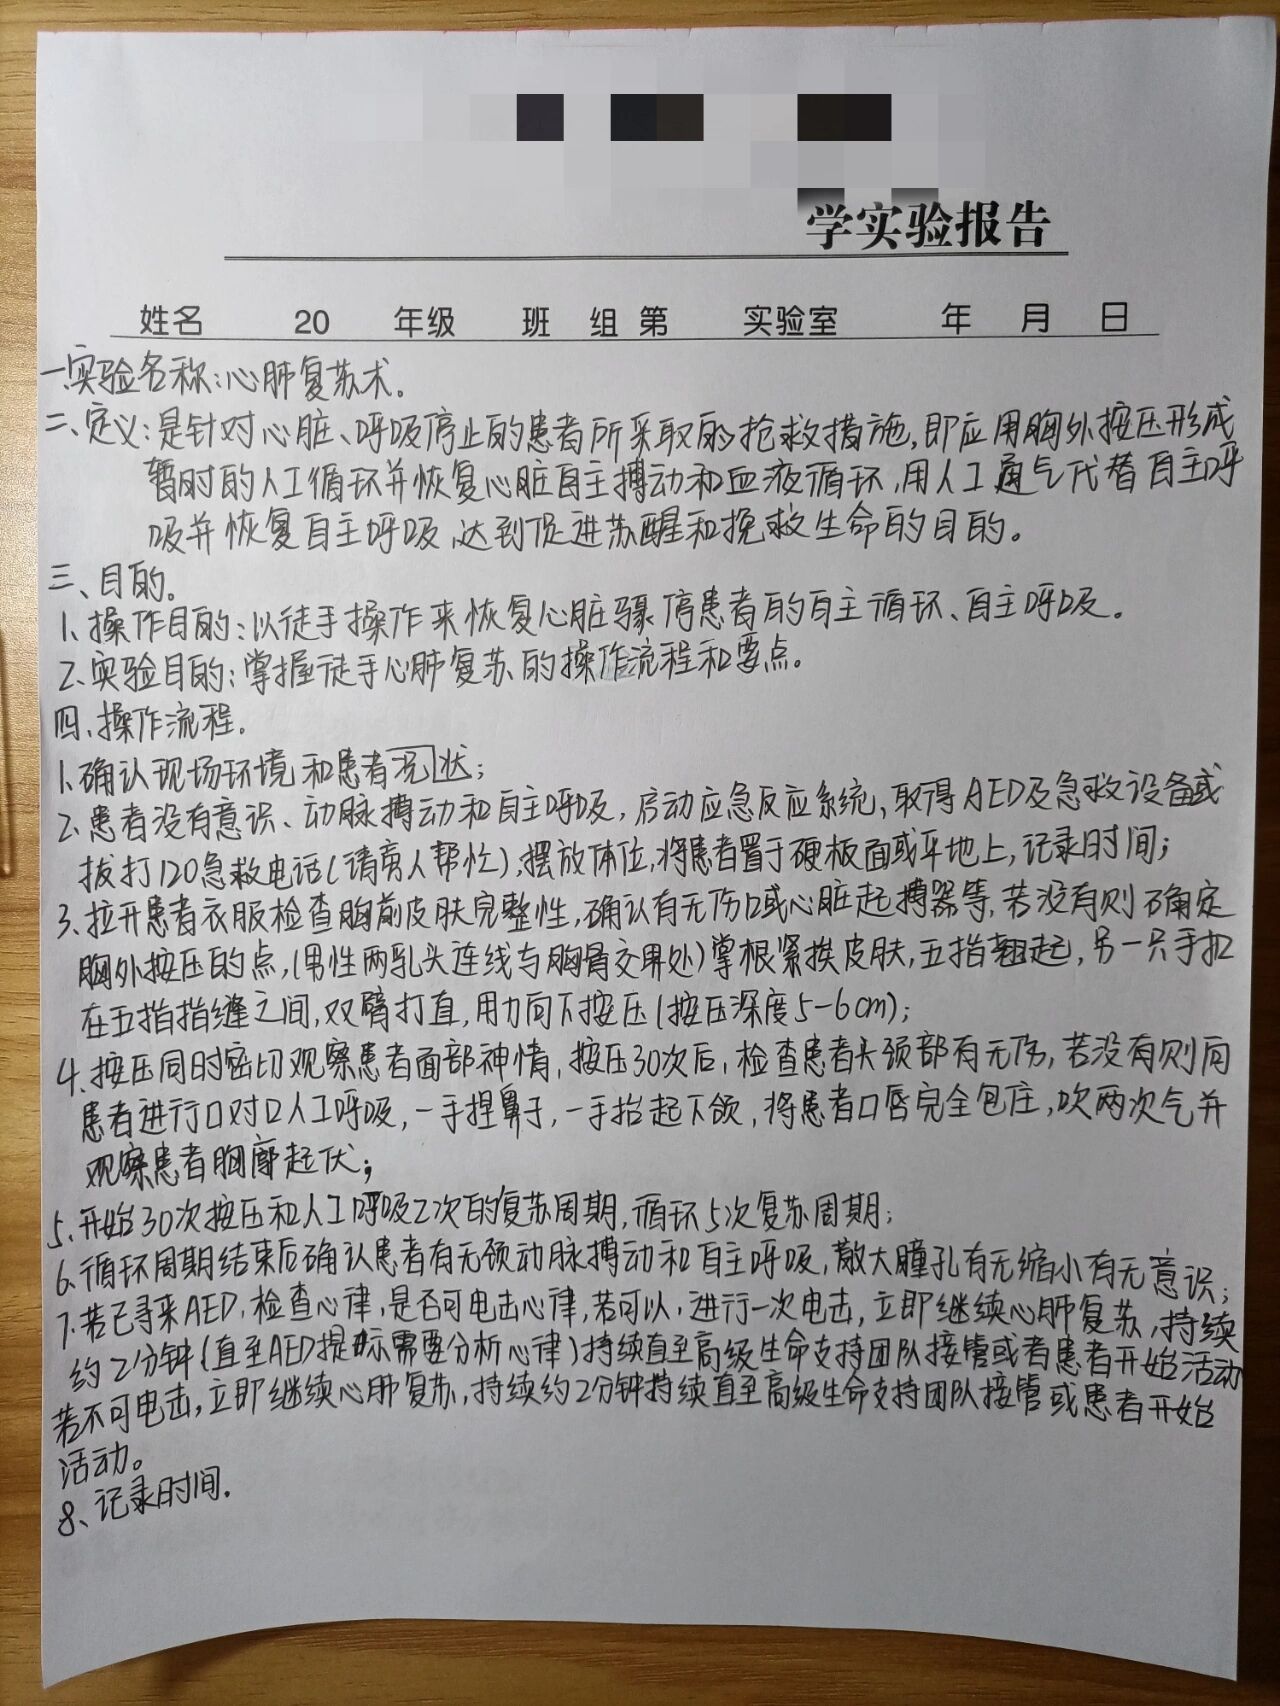 学实验报告
姓名 20 年级 班 组 第 实验室 年 月 日
一.实验名称:心肺复苏术。
二、定义:是针对心脏、呼吸停止的患者所采取的抢救措施,即应用胸外按压形成
暂时的人工循环并恢复心脏自主搏动和血液循环,用人工通气代替自主呼
吸并恢复自主呼吸,达到促进苏醒和挽救生命的目的。
三、目的。
1、操作目的:以徒手操作来恢复心脏骤停患者的自主循环、自主呼吸。
2、实验目的:掌握徒手心肺复苏的操作流程和要点。
四、操作流程.
1、确认现场环境和患者况状;
2、患者没有意识、动脉搏动和自主呼吸,启动应急反应系统、取得AED及急救设备或
拔打120急救电话(请旁人帮忙),摆放体位,将患者置于硬板面或平地上,记录时间;
3、拉开患者衣服检查胸前皮肤完整性,确认有无伤口或心脏起搏器等,若没有则确定
胸外按压的点,(男性两乳头连线与胸骨交界处)掌根紧挨皮肤,五指翘起,另一只手扣
在五指指缝之间,双臂打直,用力向下按压(按压深度5-6cm);
4、按压同时密切观察患者面部神情,按压30次后,检查患者头颈部有无伤,若没有则向
患者进行口对口人工呼吸,一手捏鼻子,一手抬起下颌,将患者口唇完全包住,吹两次气并
观察患者胸廓起伏;
5、开始30次按压和人工呼吸2次的复苏周期,循环5次复苏周期;
6、循环周期结束后确认患者有无颈动脉搏动和自主呼吸,散大瞳孔有无缩小有无意识;
7、若已寻来AED,检查心律,是否可电击心律,若可以,进行一次电击,立即继续心肺复苏,持续
约2分钟(直至AED提示需要分析心律)持续直至高级生命支持团队接管或者患者开始活动
若不可电击,立即继续心肺复苏,持续约2分钟持续直至高级生命支持团队接管或患者开始
活动。
8、记录时间.